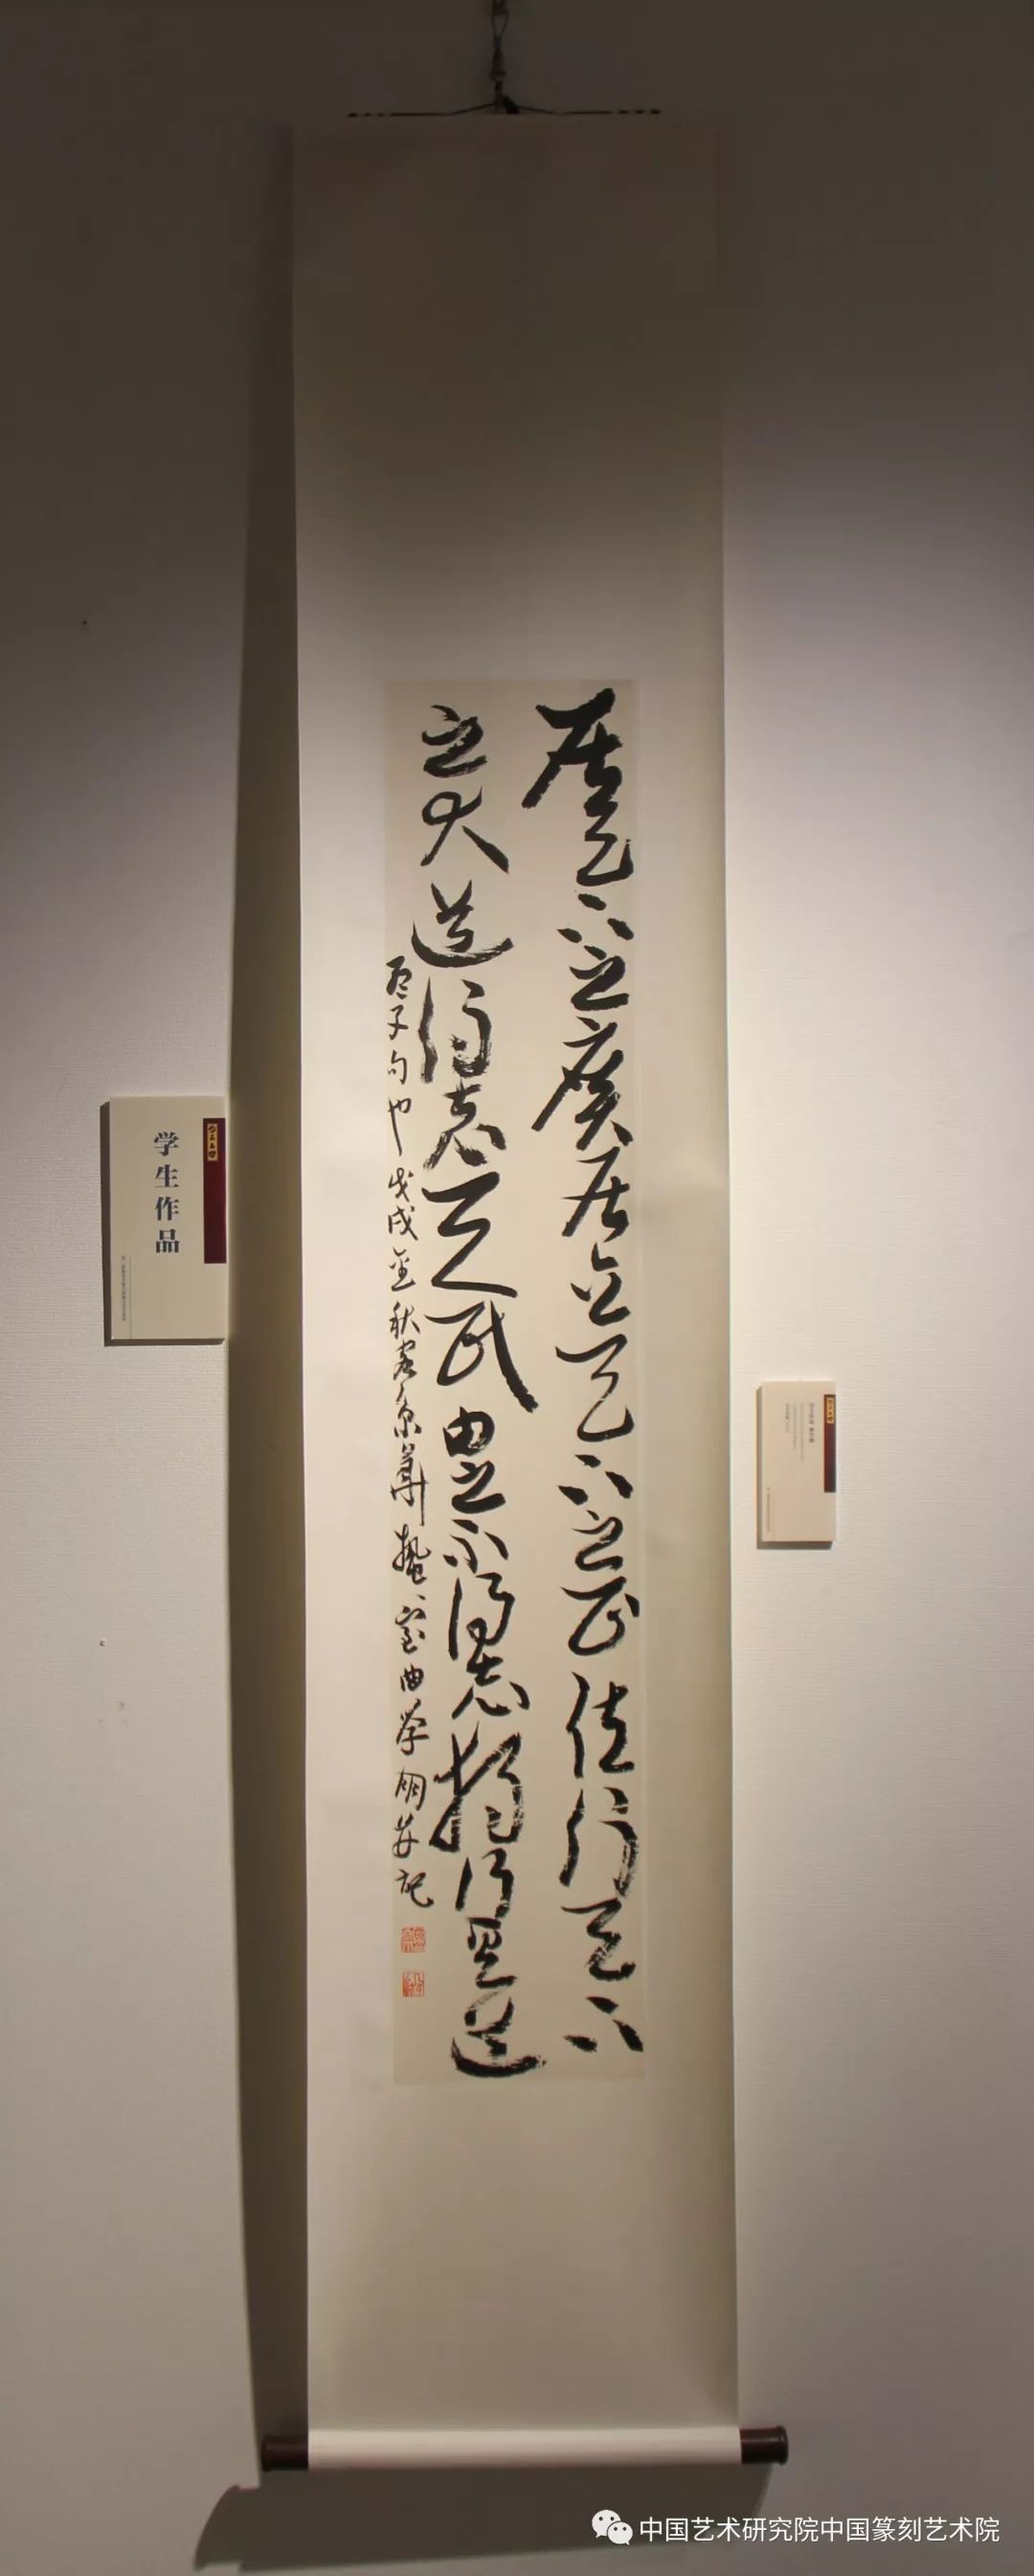 居天下之广居立天下之正位行天下
之大道得志与民由之不得志独行其道
孟子句也戊戌金秋客京华蛰室曲学明安记
学生作品
中国艺术研究院中国篆刻艺术院